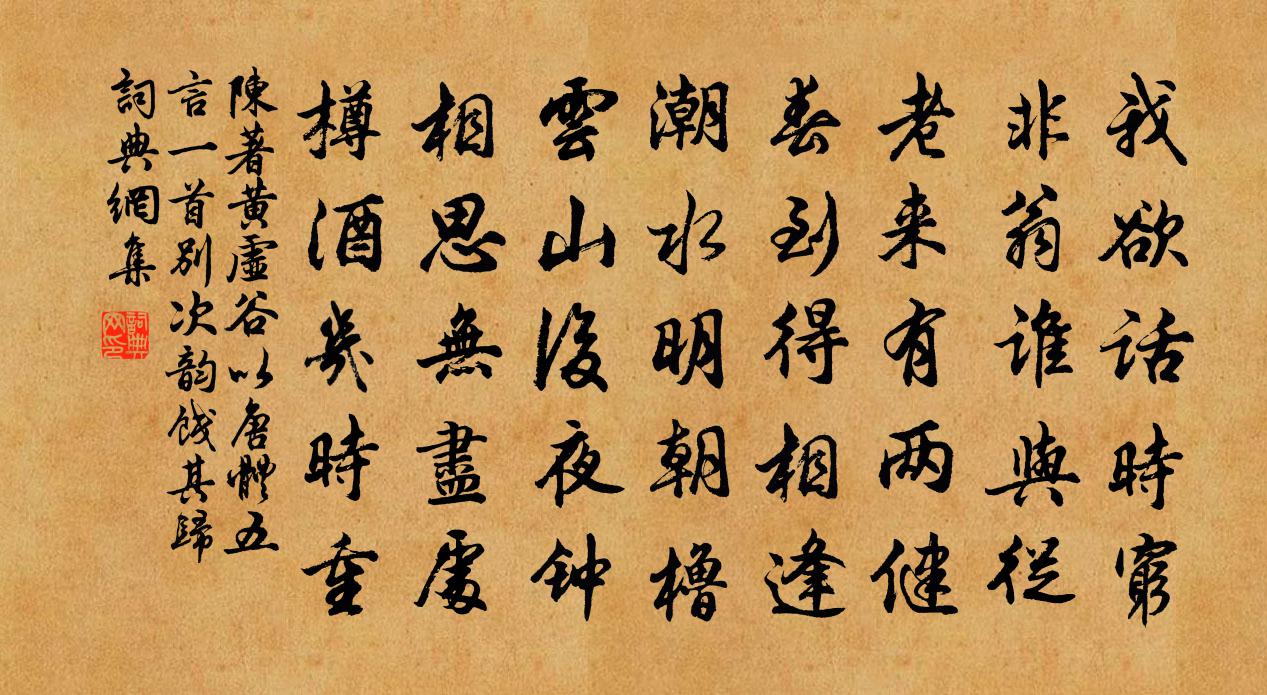 我欲話時窮
非翁誰與從
老来有两健
春到得相逢
潮水明朝櫓
雲山後夜钟
相思無盡處
樽酒幾時重
陳著黄虛谷以唐體五
言一首别次韵餞其歸
詞典網集
詞典网印